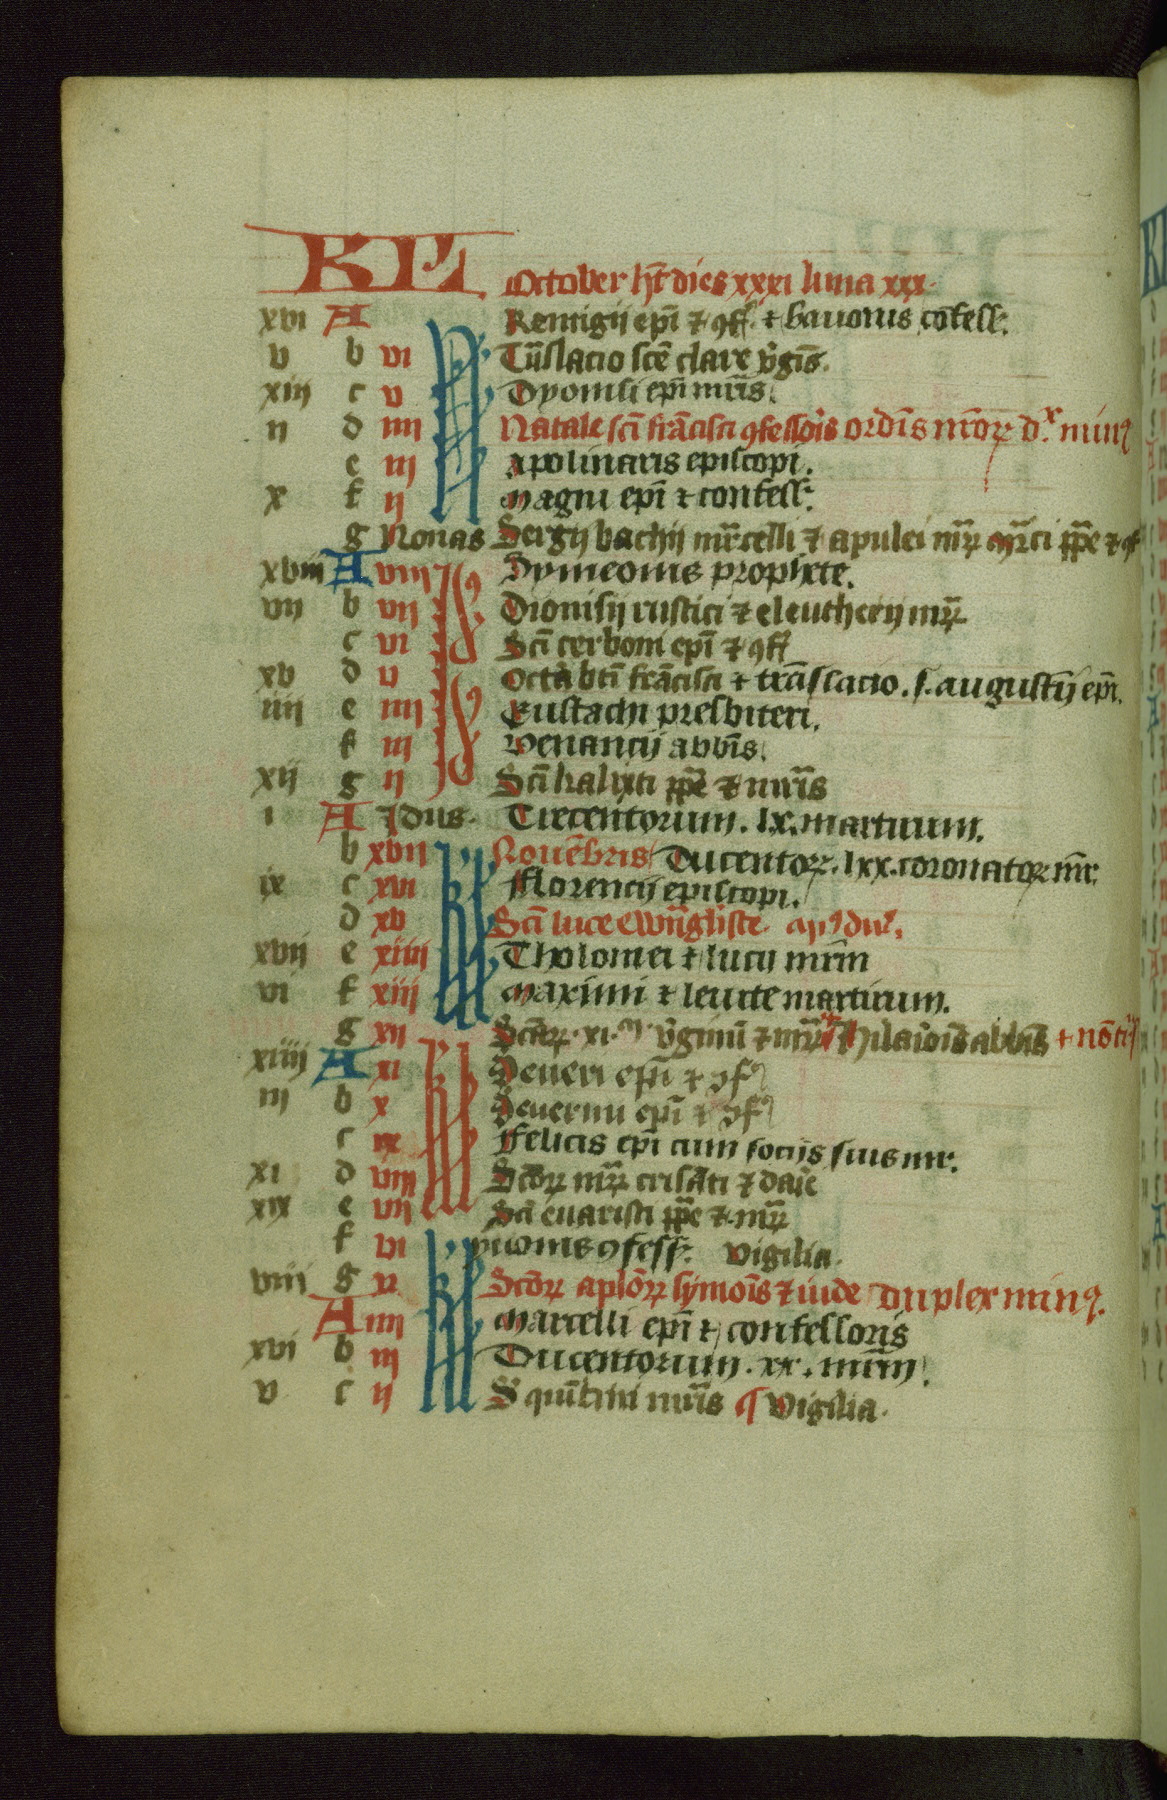 KL October ht dies xxxi luna xxx.
xvi A Remigii epi ⁊ ꝯff. ⁊ bavonis confess.
v b vi Tnslacio sce clare vgis.
xiii c v Dyonisi epi mris.
ii d iiii Natale sci francisci ꝯfessois ordis minor
e iii Apolinaris episcopi.
x f ii Magni epi ⁊ confess.
g Nonas Sergii bachii mrcelli ⁊ apulei mr mrci ppe ⁊ ꝯf
xviii A viii Symeonis prophete.
vii b vii Dionisii rustici ⁊ eleutherii mr
c vi Sci cerboni epi ⁊ ꝯff
xv d v Octa bti francisci ⁊ translacio. s. augustii epi.
iiii e iiii Eustachi presbiteri.
f iii Venancii abbis.
xii g ii Sci kalixti ppe ⁊ mris
i A Idus. Trecentorum. lx. martirum.
b xvii Novebris Ducentor. lxx. coronator mr.
ix c xvi Florencii episcopi.
d xv Sci luce ewangliste.
xvii e xiiii Tholomei ⁊ lucii mrm
vi f xiii Maximi ⁊ leucte martirum.
g xii Scor. xi. m vginu ⁊ mr hilariois abbis
xiiii A xi Severi epi ⁊ ꝯf
iii b x Severini epi ⁊ ꝯf
c ix Felicis epi cum sociis suis mr.
xi d viii Scor mr crisati ⁊ darie
xix e vii Sci evaristi ppe ⁊ mr
f vi yuonis ꝯfess. vigilia.
viii g v Scor aplor symois ⁊ iude Duplex min
A iiii Marcelli epi ⁊ confessoris
xvi b iii Ducentorum. xx. mrm.
v c ii S quintini mris vigilia.